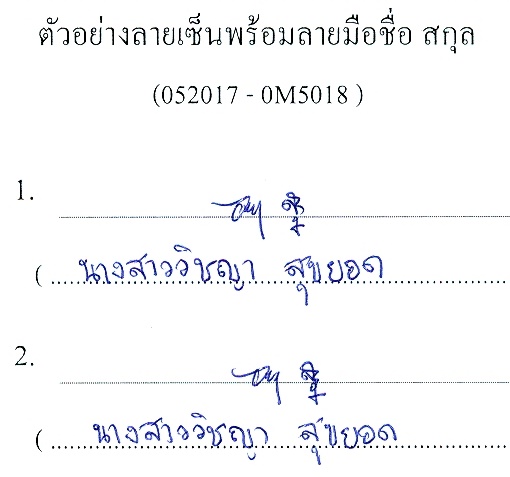 ตัวอย่างลายเซ็นพร้อมลายมือชื่อ สกุล
(052017 - 0M5018 )
1.
( นางสาววิชญา สุขยอด
2.
( นางสาววิชญา สุขยอด